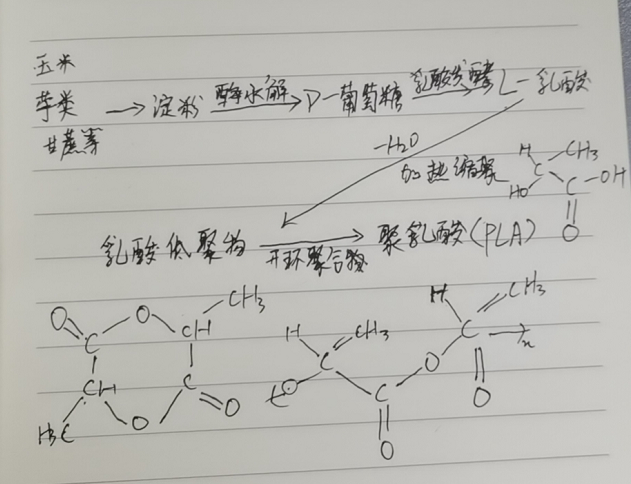 玉米
芋类 → 淀粉 酶水解 D-葡萄糖 乳酸发酵 L-乳酸
甘蔗等
-H2O
加热缩聚
H CH3
HO C C-OH
O
乳酸低聚物 开环聚合 聚乳酸(PLA)
CH3 H CH3
O O CH H CH3 C
C C O n
CH C O O C O
H3C O O